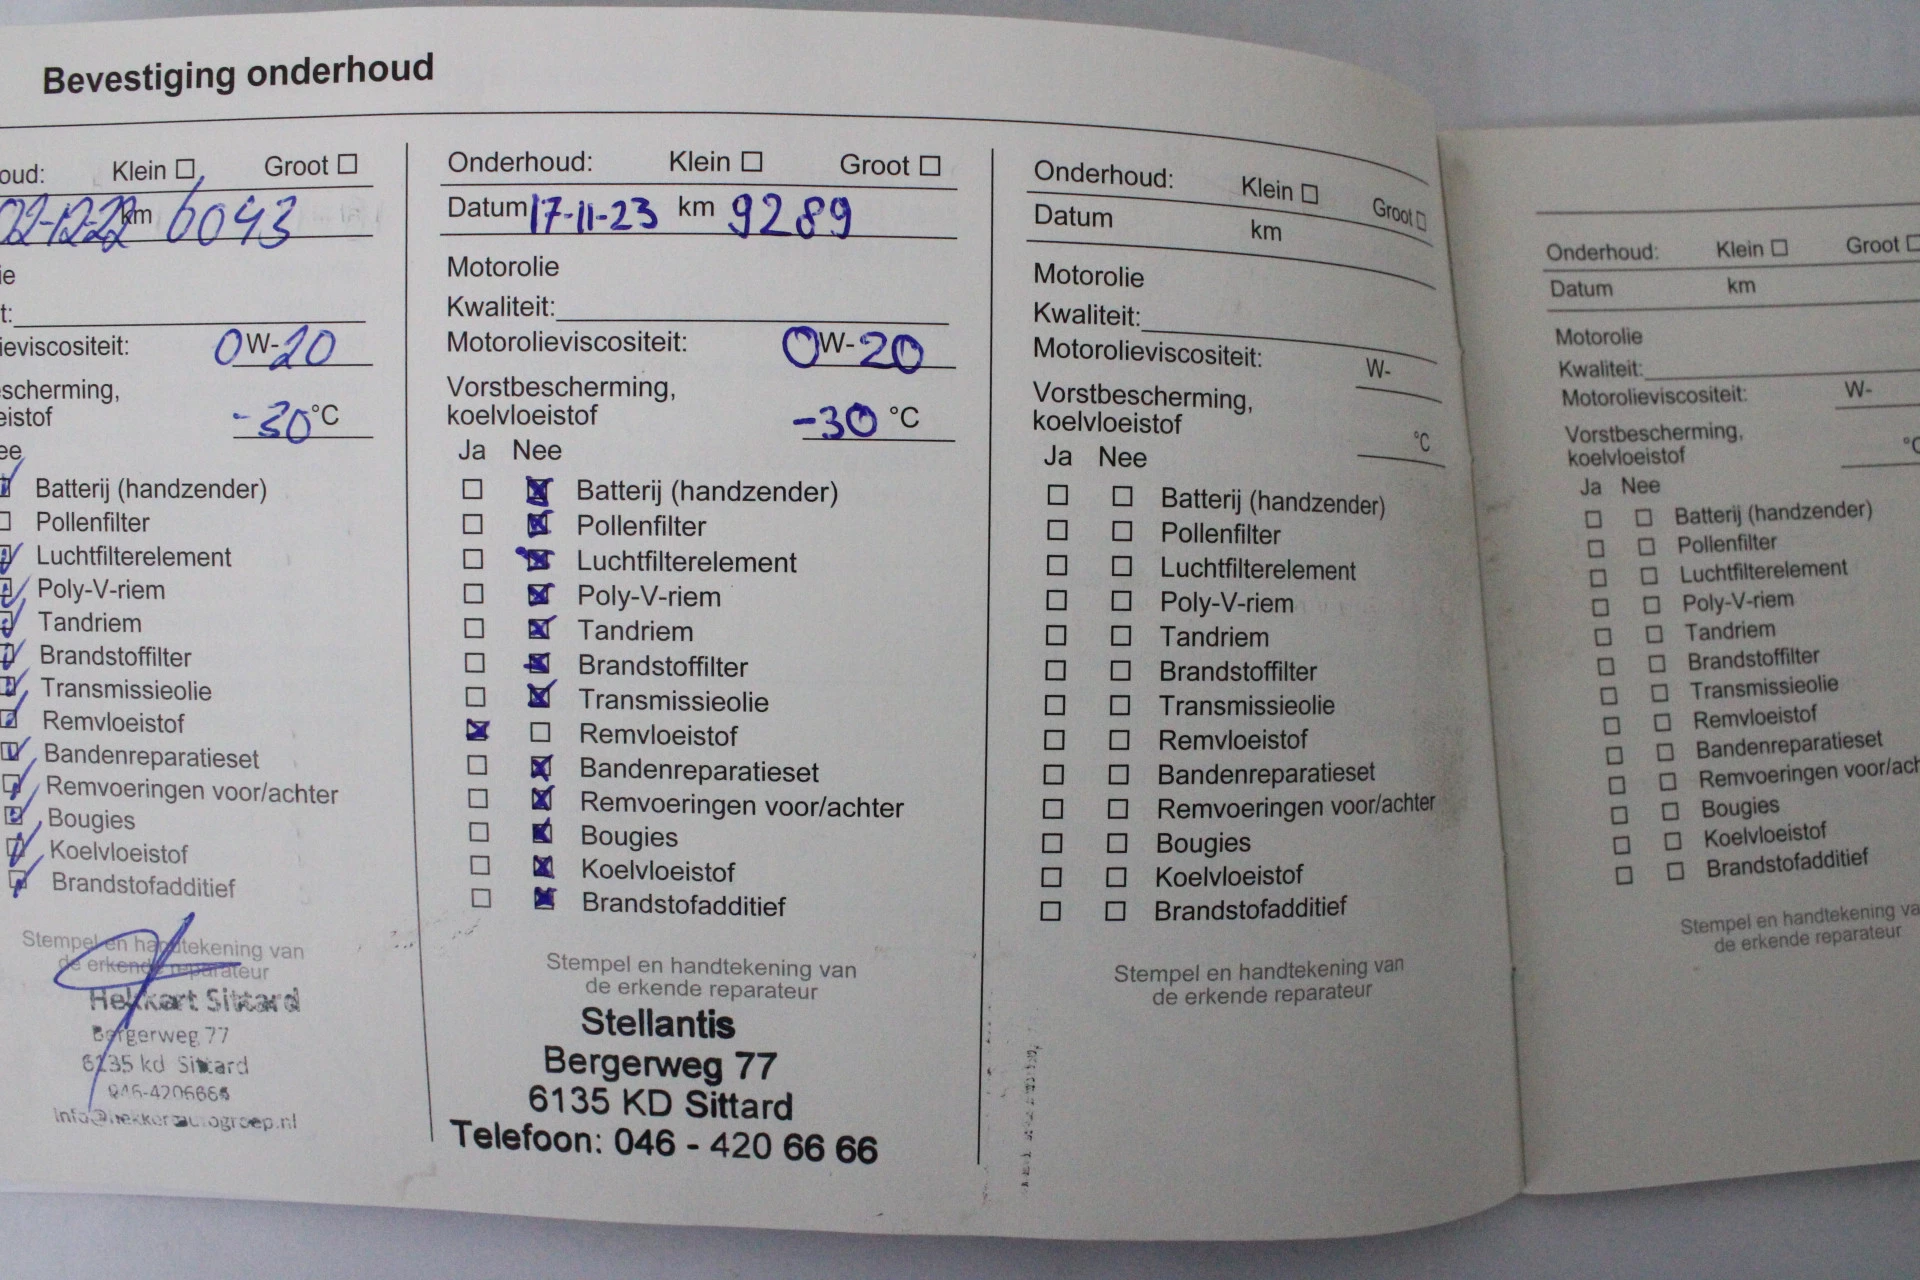 Bevestiging onderhoud
oud: Klein Groot
02-12-22 km 6043
ie
t:
ieviscositeit: 0W-20
escherming,
eistof -30 °C
ee
Batterij (handzender)
Pollenfilter
Luchtfilterelement
Poly-V-riem
Tandriem
Brandstoffilter
Transmissieolie
Remvloeistof
Bandenreparatieset
Remvoeringen voor/achter
Bougies
Koelvloeistof
Brandstofadditief
Stempel en handtekening van
de erkende reparateur
Hekkert Sittard
Bergerweg 77
6135 kd Sittard
Onderhoud: Klein Groot
Datum 17-11-23 km 9289
Motorolie
Kwaliteit:
Motorolieviscositeit: 0W-20
Vorstbescherming,
koelvloeistof -30 °C
Ja Nee
Batterij (handzender)
Pollenfilter
Luchtfilterelement
Poly-V-riem
Tandriem
Brandstoffilter
Transmissieolie
Remvloeistof
Bandenreparatieset
Remvoeringen voor/achter
Bougies
Koelvloeistof
Brandstofadditief
Stempel en handtekening van
de erkende reparateur
Stellantis
Bergerweg 77
6135 KD Sittard
Telefoon: 046 - 420 66 66
Onderhoud: Klein Groot
Datum km
Motorolie
Kwaliteit:
Motorolieviscositeit: W-
Vorstbescherming,
koelvloeistof °C
Ja Nee
Batterij (handzender)
Pollenfilter
Luchtfilterelement
Poly-V-riem
Tandriem
Brandstoffilter
Transmissieolie
Remvloeistof
Bandenreparatieset
Remvoeringen voor/achter
Bougies
Koelvloeistof
Brandstofadditief
Stempel en handtekening van
de erkende reparateur
Onderhoud: Klein Groot
Datum km
Motorolie
Kwaliteit:
Motorolieviscositeit: W-
Vorstbescherming,
koelvloeistof °C
Ja Nee
Batterij (handzender)
Pollenfilter
Luchtfilterelement
Poly-V-riem
Tandriem
Brandstoffilter
Transmissieolie
Remvloeistof
Bandenreparatieset
Remvoeringen voor/ach
Bougies
Koelvloeistof
Brandstofadditief
Stempel en handtekening va
de erkende reparateur